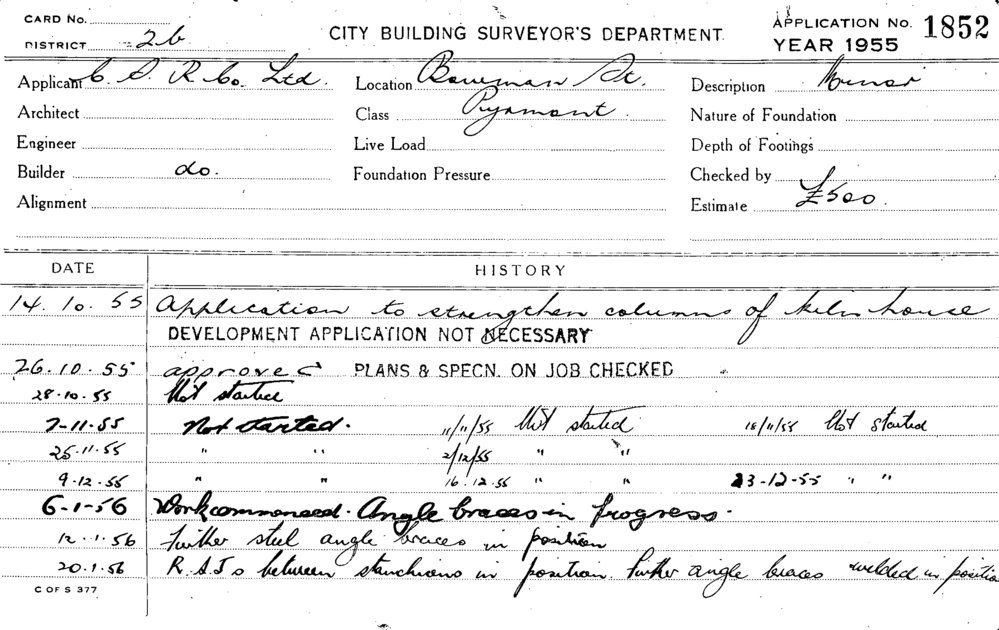 CARD No. CITY BUILDING SURVEYOR'S DEPARTMENT APPLICATION No. 1852
DISTRICT 2b YEAR 1955
Applicant C. S. R. Co. Ltd. Location Bowman St. Description Minor
Architect Class Pyrmont Nature of Foundation
Engineer Live Load Depth of Footings
Builder do. Foundation Pressure Checked by
Alignment Estimate £500
DATE HISTORY
14.10.55 Application to strengthen columns of kiln house
DEVELOPMENT APPLICATION NOT NECESSARY
26.10.55 approved PLANS & SPECN. ON JOB CHECKED
28.10.55 Not started
7-11-55 Not started. 11/11/55 Not started 18/11/55 Not started
25.11.55 " " 2/12/55 " "
9.12.55 " " 16.12.55 " " 23-12-55 " "
6-1-56 Work commenced. Angle braces in progress.
12.1.56 Further steel angle braces in position
20.1.56 R.S.Js between stanchions in position. Further angle braces welded in position
C OF S 377